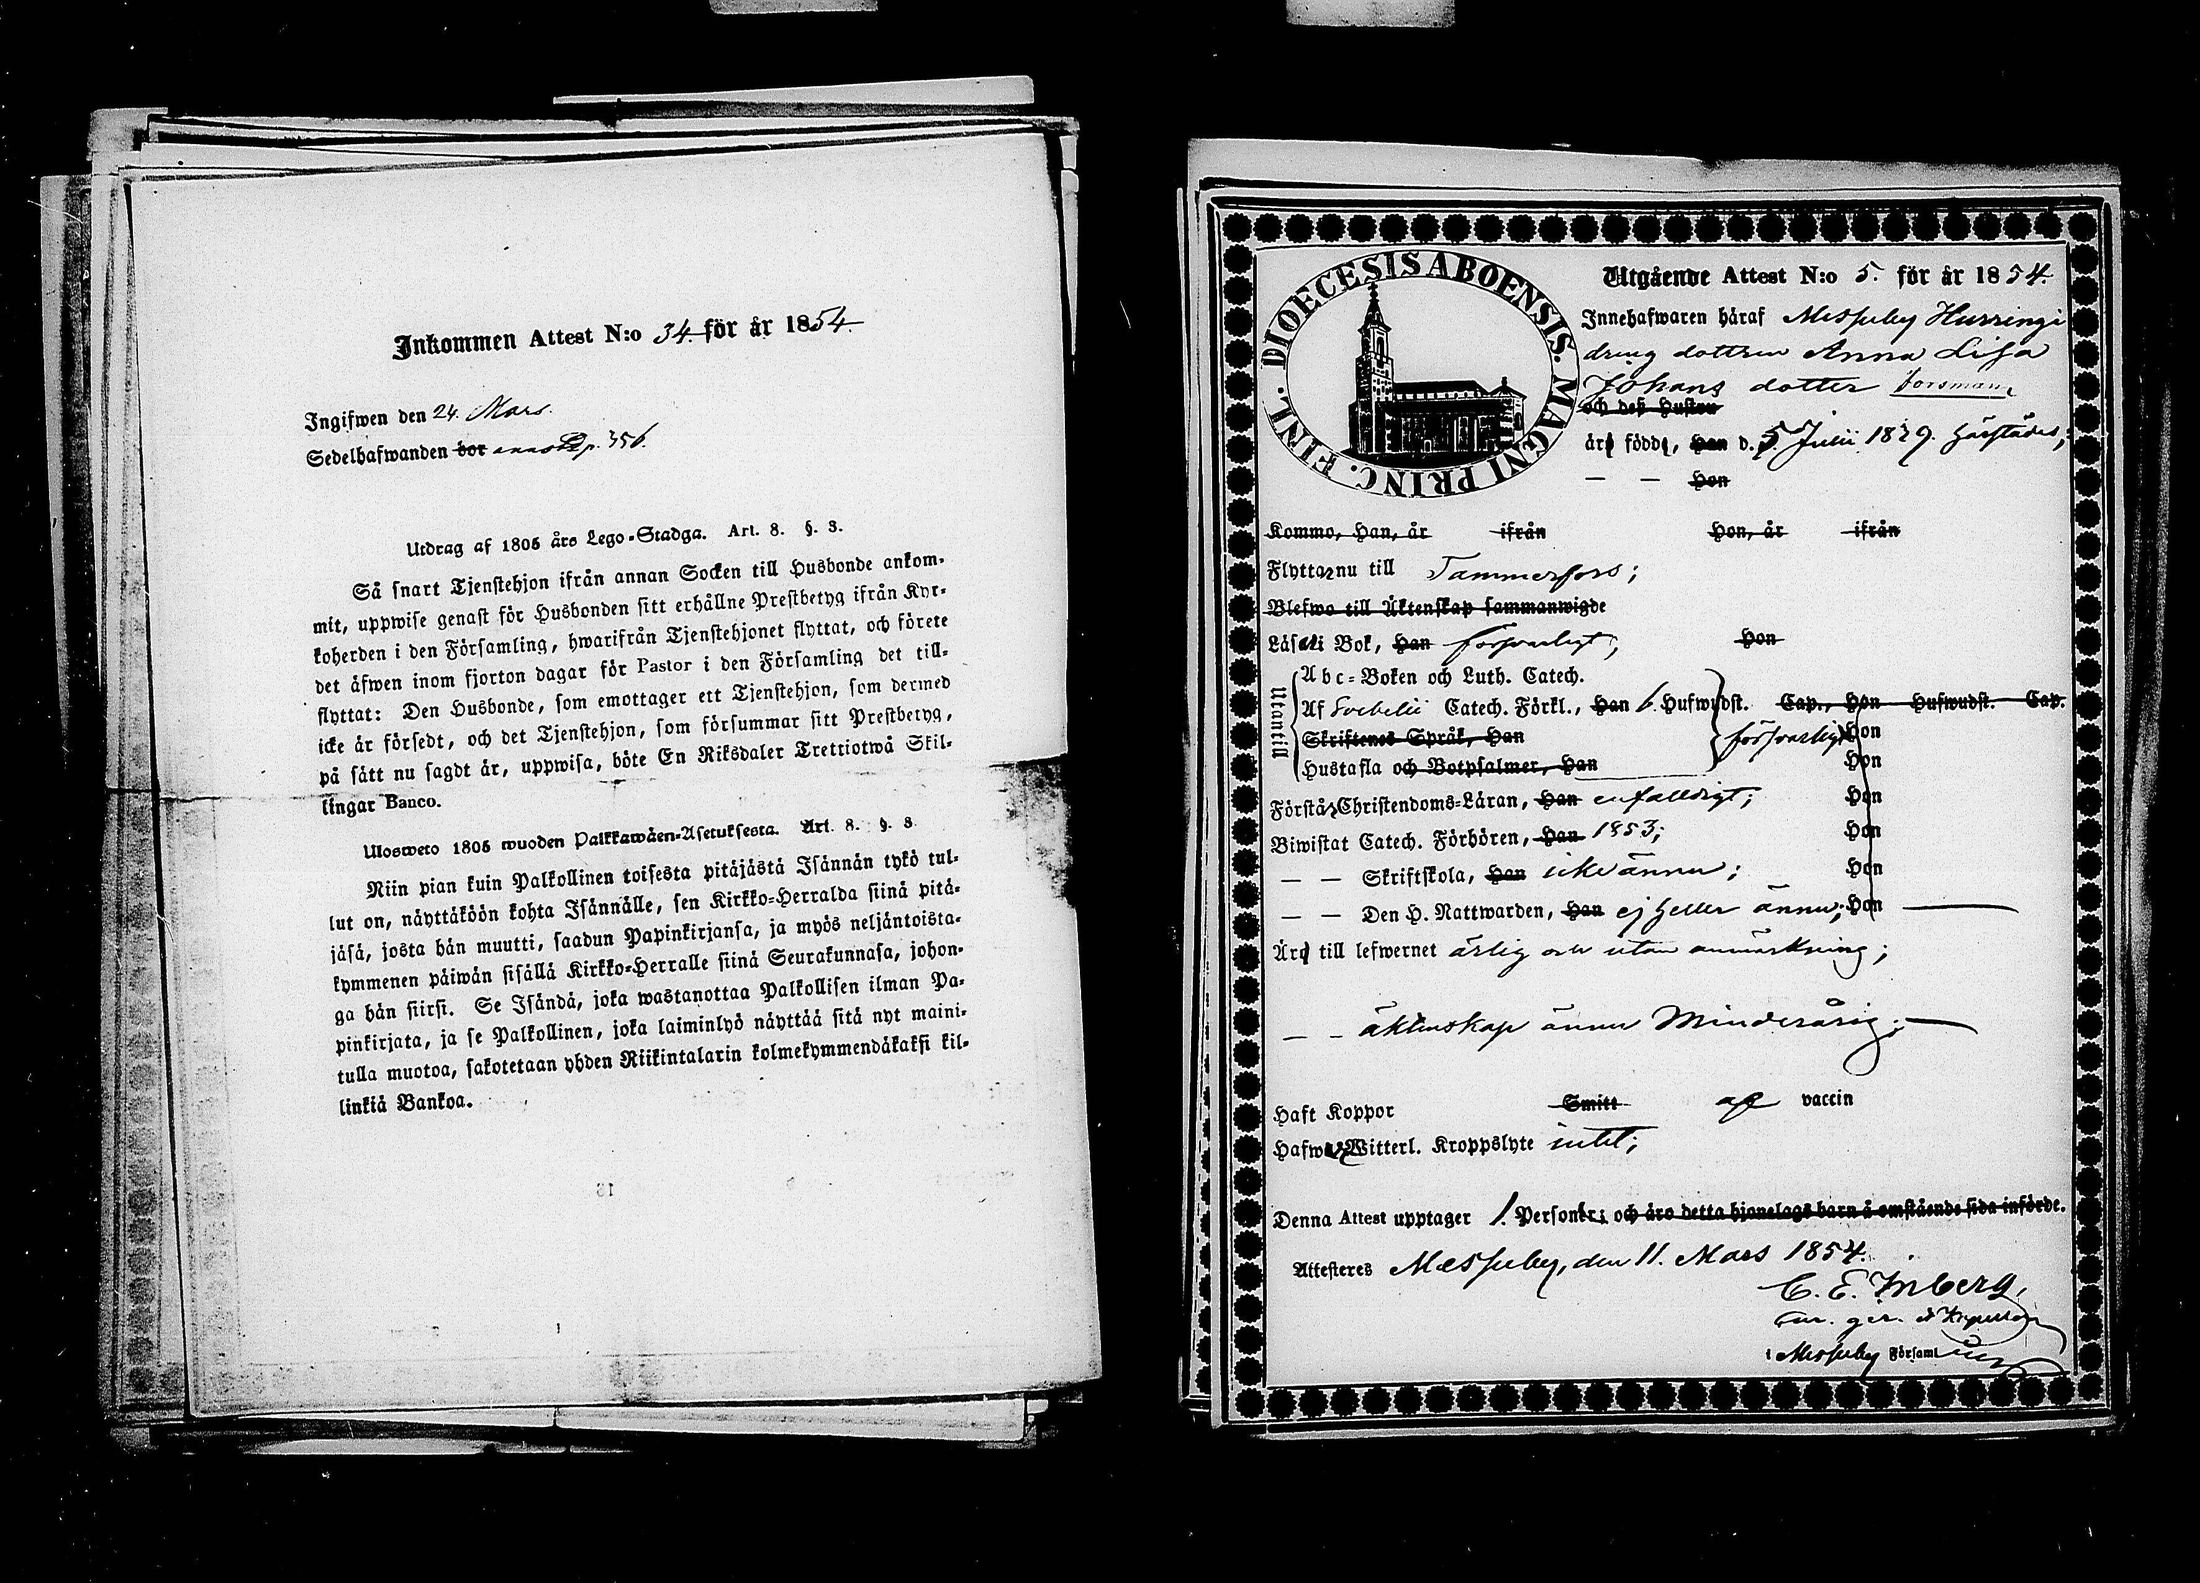 Inkommen Attest N:o 34. för år 1854.
Ingifwen den 24. Mars.
Sedelhafwanden bor p. 356.
Utdrag af 1805 års Lego-Stadga. Art. 8. §. 3.
Så snart Tjenstehjon ifrån annan Socken till Husbonde ankom-
mit, uppwise genast för Husbonden sitt erhållne Prestbetyg ifrån Kyr-
koherden i den Församling, hwarifrån Tjenstehjonet flyttat, och förete
det äfwen inom fjorton dagar för Pastor i den Församling det till-
flyttat: Den Husbonde, som emottager ett Tjenstehjon, som dermed
icke är försedt, och det Tjenstehjon, som försummar sitt Prestbetyg,
på sätt nu sagdt är, uppwisa, böte En Riksdaler Trettiotwå Skil-
lingar Banco.
Ulosweto 1805 wuoden Palkkawäen-Asetuksesta. Art. 8. §. 3
Niin pian kuin Palkollinen toisesta pitäjästä Isännän tykö tul-
lut on, näyttäköön kohta Isännälle, sen Kirkko-Herralda siinä pitä-
jäsä, josta hän muutti, saadun Papinkirjansa, ja myös neljäntoista-
kymmenen päiwän sisällä Kirkko-Herralle siinä Seurakunnasa, johon-
ga hän siirsi. Se Isändä, joka wastanottaa Palkollisen ilman Pa-
pinkirjata, ja se Palkollinen, joka laiminlyö näyttää sitä nyt maini-
tulla muotoa, sakotetaan yhden Riikintalarin kolmekymmendäkaksi kil-
linkiä Bankoa.
DIOECESIS ABOENSIS. MAGNI PRINC. FINL.
Utgående Attest N:o 5. för år 1854.
Innehafwaren häraf Messuby Hurringi
dreng dottren Anna Lisa
Johans dotter Forsman,
och deß Hustru
äro födde, Han d. 5 Julii 1839. härstädes,
— — Hon
Kommo, Han, år ifrån Hon, år ifrån
Flytta nu till Tammerfors;
Blefwo till Äktenskap sammanwigde
Läsa i Bok, Han försvarligt; Hon
Utantill
Abc-Boken och Luth. Catech.
Af Svebelii Catech. Förkl., Han 6. Hufwudst. Cap., Hon Hufwudst. Cap.
Skriftenes Språk, Han försvarligt Hon
Hustafla och Botpsalmer, Han Hon
Förstå Christendoms-Läran, Han enfalldigt; Hon
Biwistat Catech. Förhören, Han 1853; Hon
— — Skriftskola, Han icke ännu; Hon
— — Den H. Nattwarden, Han ej heller ännu; Hon
Äro till lefwernet ärlig och utan anmärkning;
— — äktenskap ännu Minderårig;
Haft Koppor Smitt af vaccin
Hafwa Witterl. Kroppslyte intet;
Denna Attest upptager 1. Personer; och äro detta hjonelags barn å omstående sida införde.
Attesteres Messuby, den 11. Mars 1854.
C. E. Inberg,
i Messuby Församl